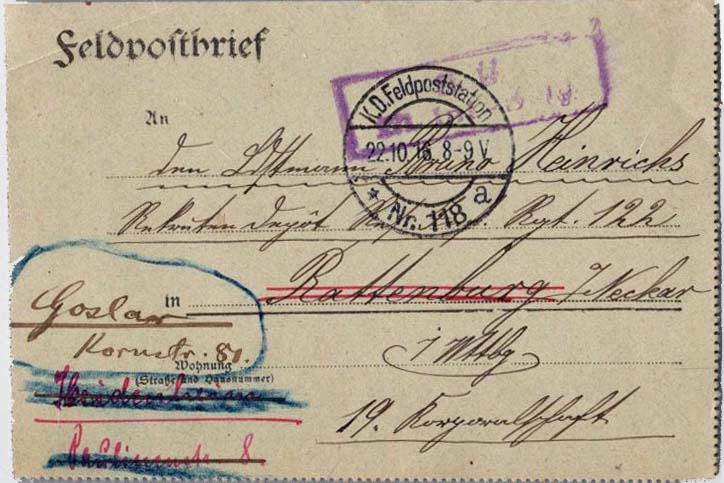 Feldpostbrief
K.D. Feldpoststation
22.10.16. 8-9 V.
* * Nr. 118 a
An
den Offsmann Bruno Heinrichs
Rekruten Depôt Regt. 122
in Rottenburg /Neckar
i Wttbg
19. Korporalschaft
Goslar
Kornstr. 81.
Wohnung
(Straße und Hausnummer)
Heidenheim
Paulinenstr. 8.